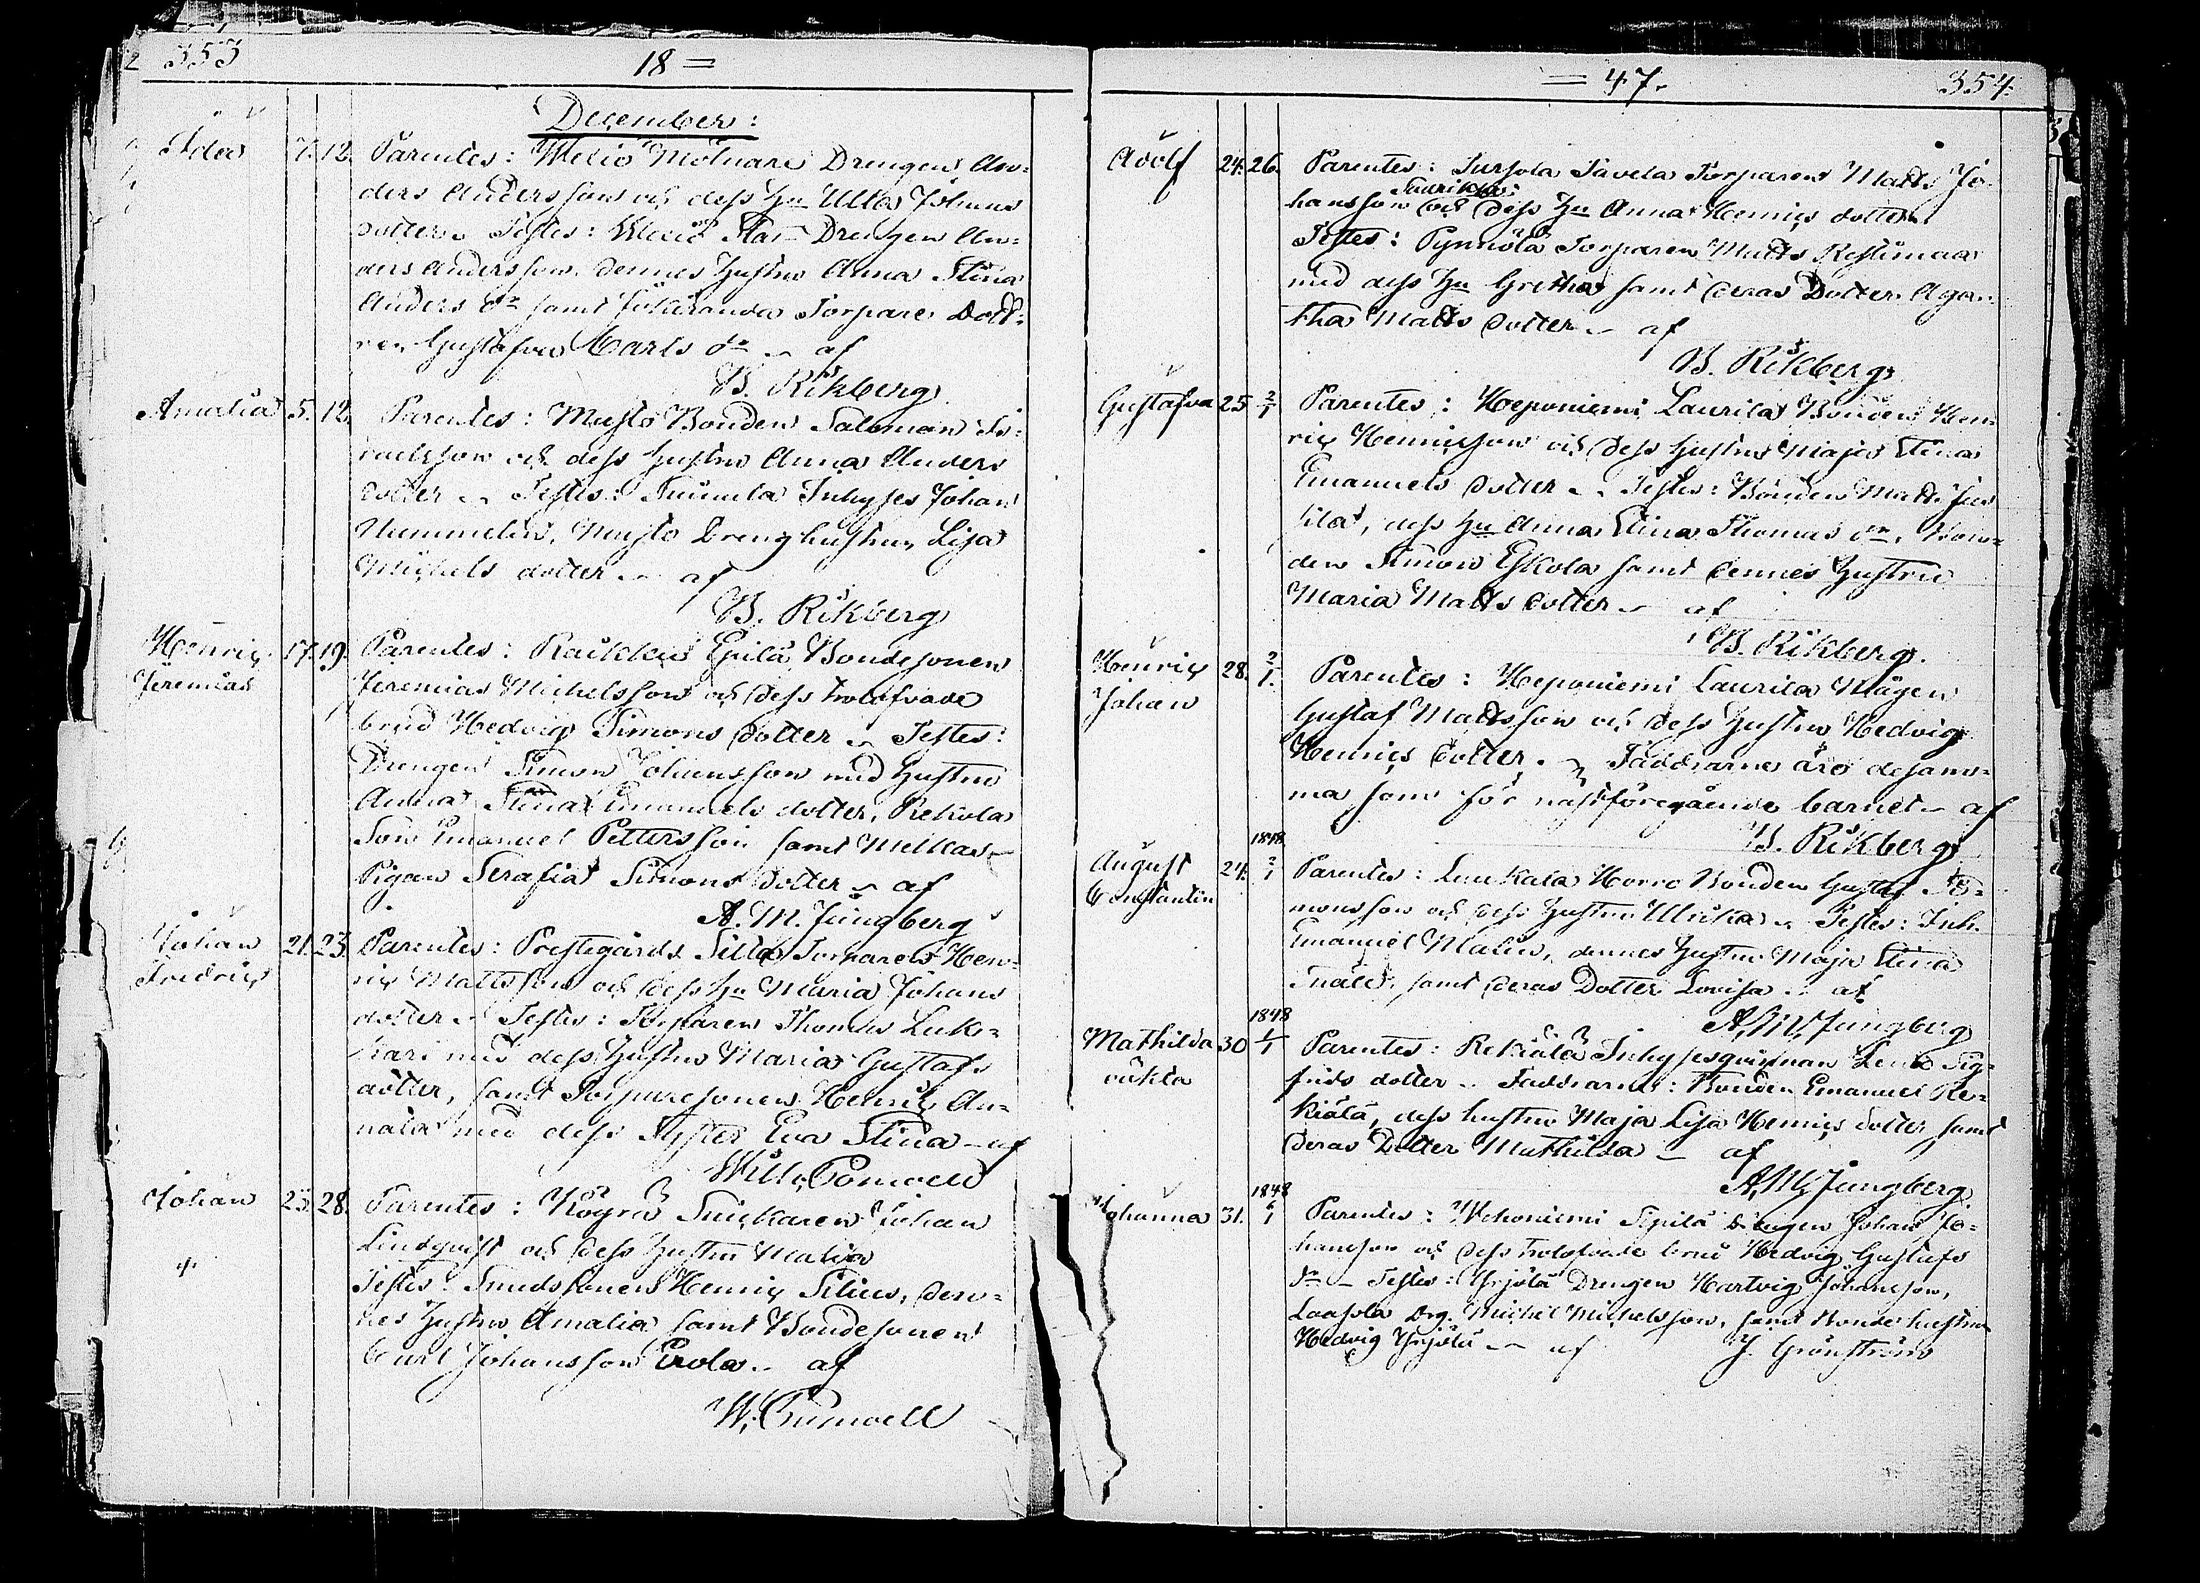 353
18 =
December:
Ida 7. 12. Parentes: Melio Mölnare Drengen An-
ders Andersson och dess Hu Ulla Johans
dotter. Testes: Drengen An-
ders Andersson dennes Hustru Anna Stina
Anders dr samt Torpare Dott-
ren Gustafva Carls dr af
B. Rikberg
Amalia 5. 12. Parentes: Musto Bonden Salomon Is-
raelsson och dess hustru Anna Anders
dotter. Testes: Inhyses Johan
Nummelin, Musto Dreng hustru Lisa
Michels dotter af
B. Rikberg
Henric 17. 19. Parentes: Raikku Epilä Bondesonen
Jeremias Jeremias Michelsson och dess trolofvade
brud Hedvig Simons dotter. Testes:
Drengen Simon Johansson med hustru
Anna Stina Emanuels dotter, Rekola
Son Emanuel Pettersson samt
Pigan Serafia Simons dotter af
A. M. Jungberg
Johan 21. 23. Parentes: Prestegårds Torparen Hen-
Fredric ric Mattsson och dess Hu Maria Johans
dotter. Testes: Torparen Thomas Luk-
kari med dess Hustru Maria Gustafs
dotter, samt Torparesonen Henric An-
nala med dess Syster Eva Stina af
Johan 25. 28. Parentes: Köyrä Snickaren Johan
Lindqvist och dess Hustru Maria
Testes: Smedssonen Henric Silius, den-
nes Hustru Amalia samt Bondesonen
Carl Johansson Erola af
= 47.
354.
Adolf 24. 26. Parentes: Sursola Savela Torparen Matts Jo-
hansson och dess Hu Anna Henrics dotter
Testes: Pynnölä Torparen Matts Restimaa
med dess Hu Gretha samt deras Dotter Aga-
tha Matts dotter af
B. Rikberg
Gustafva 25 2/1 Parentes: Heponiemi Laurila Bonden Hen-
ric Henricsson och dess hustru Maja Stina
Emanuels dotter. Testes: Bonden Matts Jus-
sila, dess Hu Anna Stina Thomas dr, Bon-
den Simon Eskola samt dennes Hustru
Maria Matts dotter af
B. Rikberg.
Henric 28. 2/1. Parentes: Heponiemi Laurila Mågen
Johan Gustaf Mattsson och dess Hustru Hedvig
Henrics dotter. Faddrarne äro desam-
ma som för nästföregående barnet af
1848 B. Rikberg
August 24. 2/1 Parentes: Luukala Horro Bonden Gustaf Si-
Constantin monsson och dess Hustru Ulrika. Testes: Inh.
Emanuel Malin, dennes Hustru Maja Stina
samt deras Dotter Lovisa af
1848 A. M. Jungberg
Mathilda 30 1/1 Parentes: Rekiälä Inhysesqvinnan Lena Sig-
oäkta frids dotter. Faddrarne: Bonden Emanuel Re-
kiälä, dess hustru Maja Lisa Henrics dotter samt
deras Dotter Mathilda af
1848 A. M. Jungberg.
Johanna 31. 6/1 Parentes: Wehoniemi Sipilä Drengen Johan Jo-
hansson och dess trolofvade brud Hedvig Gustafs
dr. Testes: Yrjölä Drengen Hartvig Johansson,
Laasola Drg. Michel Michelsson, samt Bonde hustru
Hedvig Yrjölä af J. Grönström